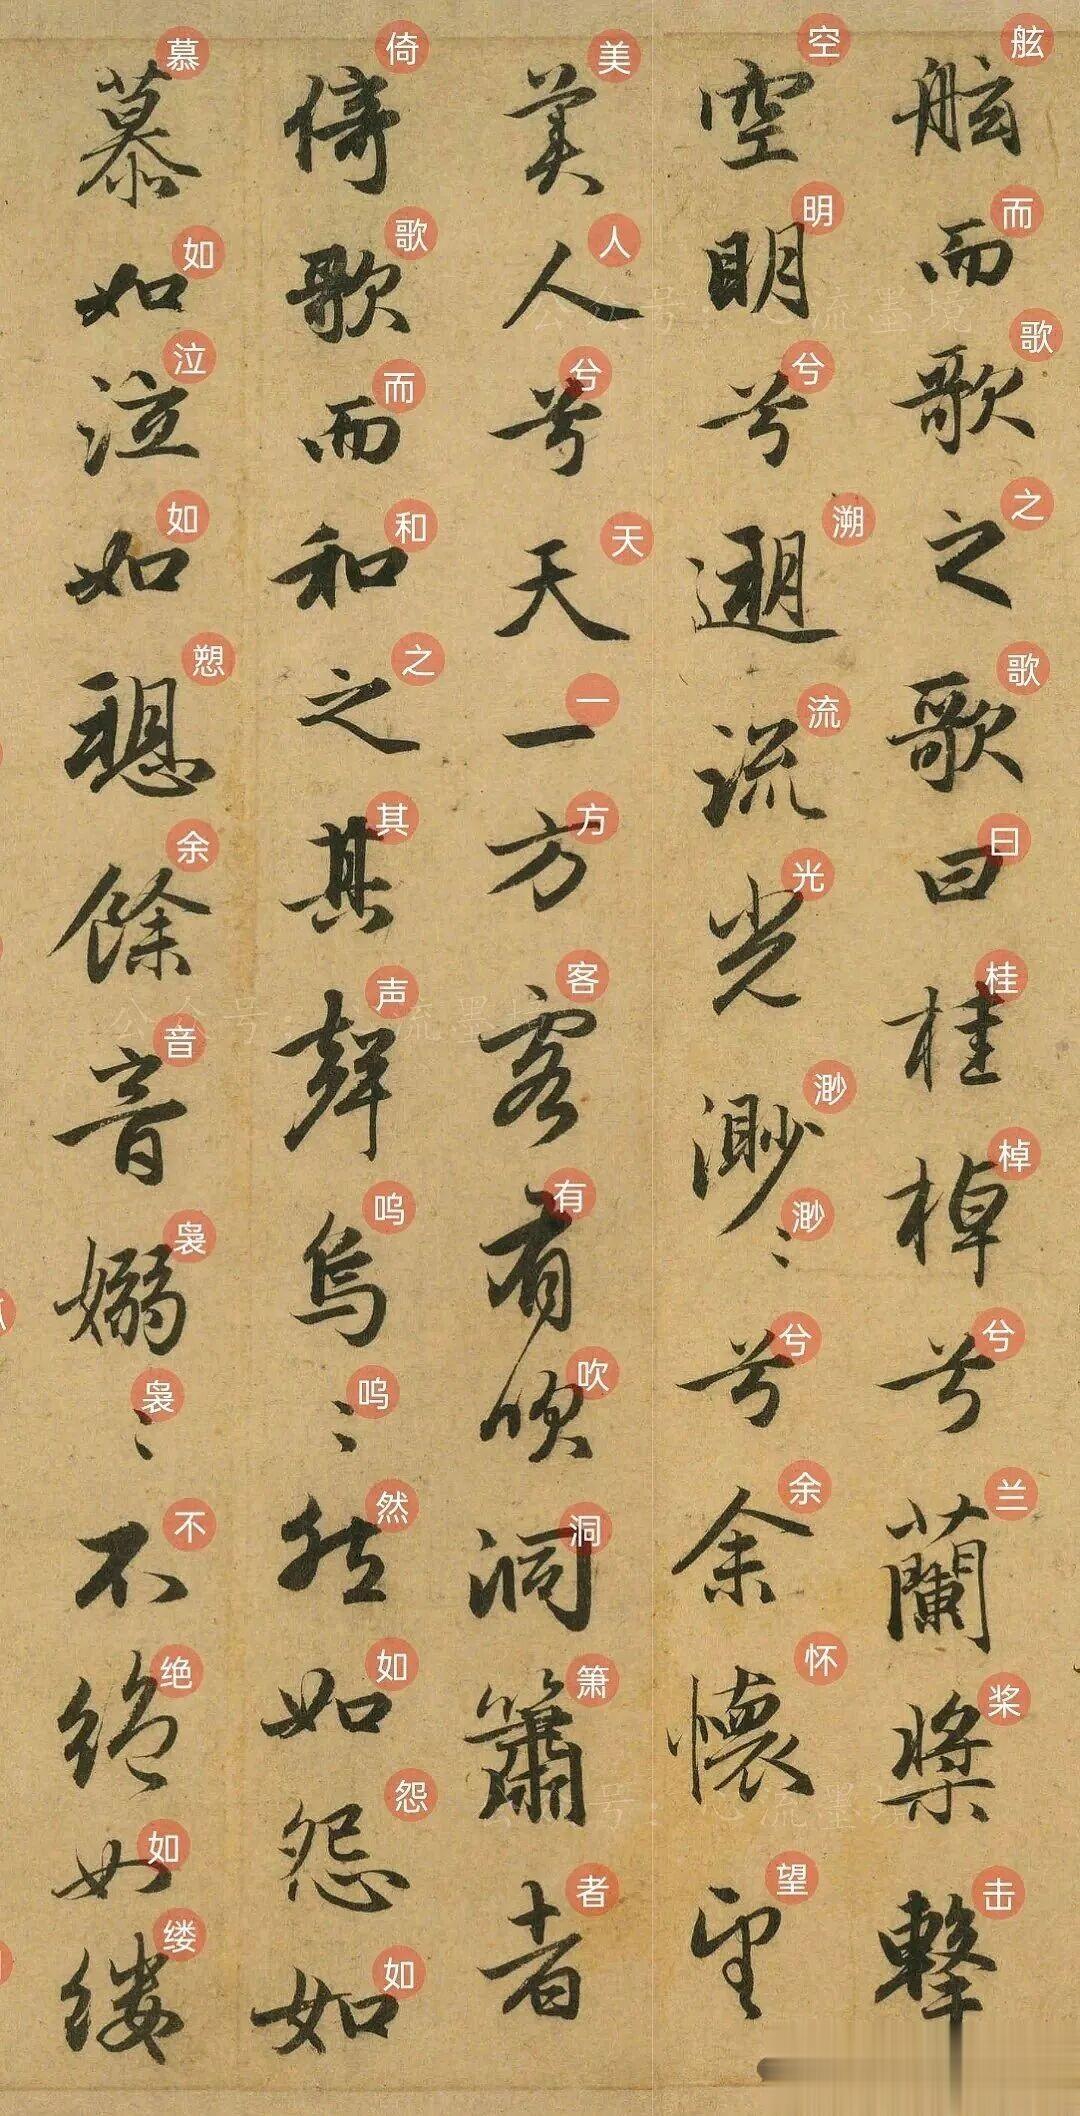 舷而歌之歌曰桂棹兮蘭槳擊
空明兮遡流光渺〻兮余懷望
美人兮天一方客有吹洞簫者
倚歌而和之其聲烏〻然如怨如
慕如泣如愬餘音嫋〻不絕如縷
舷而歌之歌曰桂棹兮兰桨击
空明兮溯流光渺渺兮余怀望
美人兮天一方客有吹洞箫者
倚歌而和之其声呜呜然如怨如
慕如泣如愬余音袅袅不绝如缕